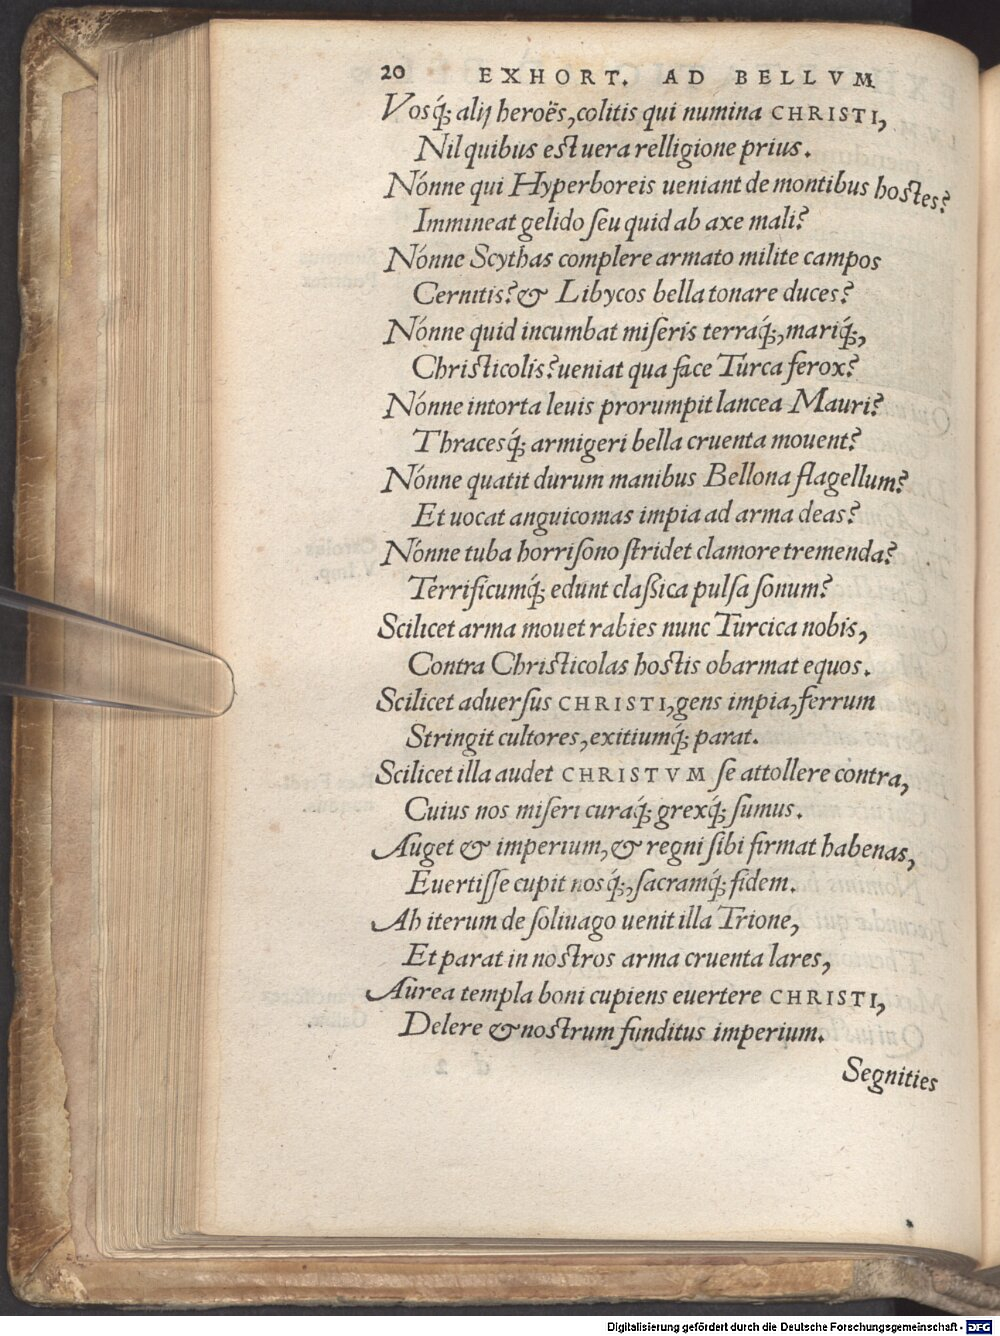 20 EXHORT. AD BELLVM
Vosq́; alij heroës, colitis qui numina CHRISTI,
Nil quibus est uera relligione prius.
Nónne qui Hyperboreis ueniant de montibus hostes?
Immineat gelido seu quid ab axe mali?
Nónne Scythas complere armato milite campos
Cernitis? & Libycos bella tonare duces?
Nónne quid incumbat miseris terraq́;, mariq́;,
Christicolis? ueniat qua face Turca ferox?
Nónne intorta leuis prorumpit lancea Mauri?
Thracesq́; armigeri bella cruenta mouent?
Nónne quatit durum manibus Bellona flagellum?
Et uocat anguicomas impia ad arma deas?
Nónne tuba horrisono stridet clamore tremenda?
Terrificumq́; edunt claßica pulsa sonum?
Scilicet arma mouet rabies nunc Turcica nobis,
Contra Christicolas hostis obarmat equos.
Scilicet aduersus CHRISTI, gens impia, ferrum
Stringit cultores, exitiumq́; parat.
Scilicet illa audet CHRISTVM se attollere contra,
Cuius nos miseri curaq́; grexq́; sumus.
Auget & imperium, & regni sibi firmat habenas,
Euertisse cupit nosq́;, sacramq́; fidem.
Ah iterum de soliuago uenit illa Trione,
Et parat in nostros arma cruenta lares,
Aurea templa boni cupiens euertere CHRISTI,
Delere & nostrum funditus imperium.
Segnities
Digitalisierung gefördert durch die Deutsche Forschungsgemeinschaft - DFG